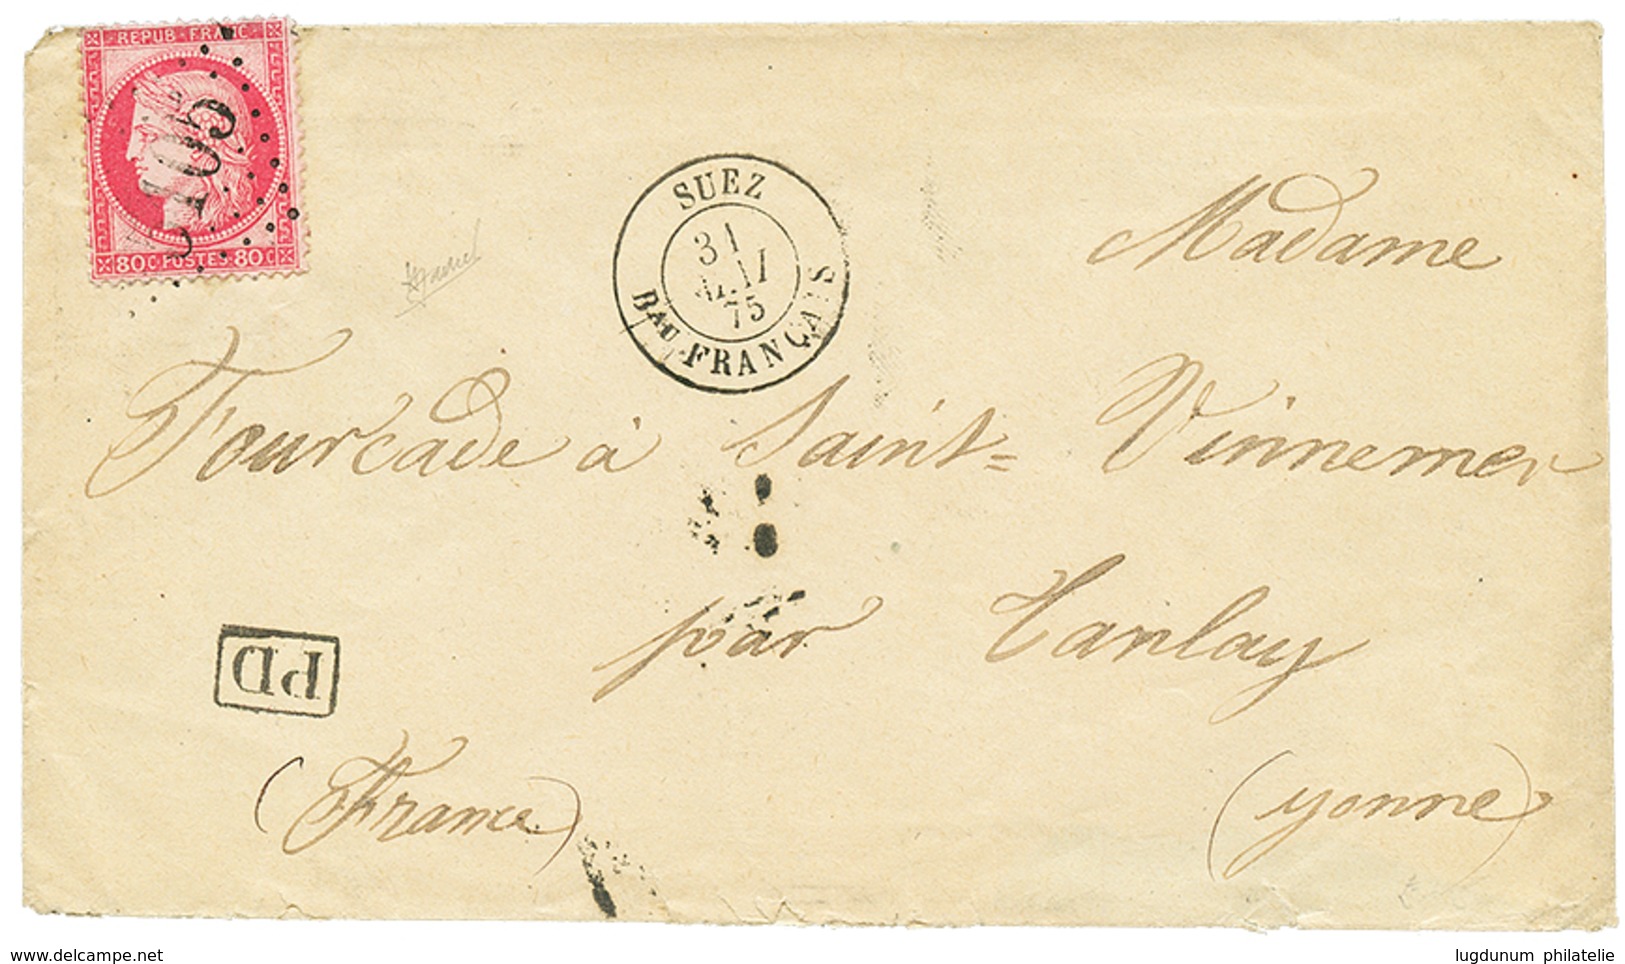 REPUB·FRANC
5105
80C POSTES 80C
SUEZ
31
MAI
75
Bau FRANÇAIS
Madame
Fourcade à Saint=Vinnemer
par Tanlay
PD
(France)
(yonne)
lugdunum philatelie